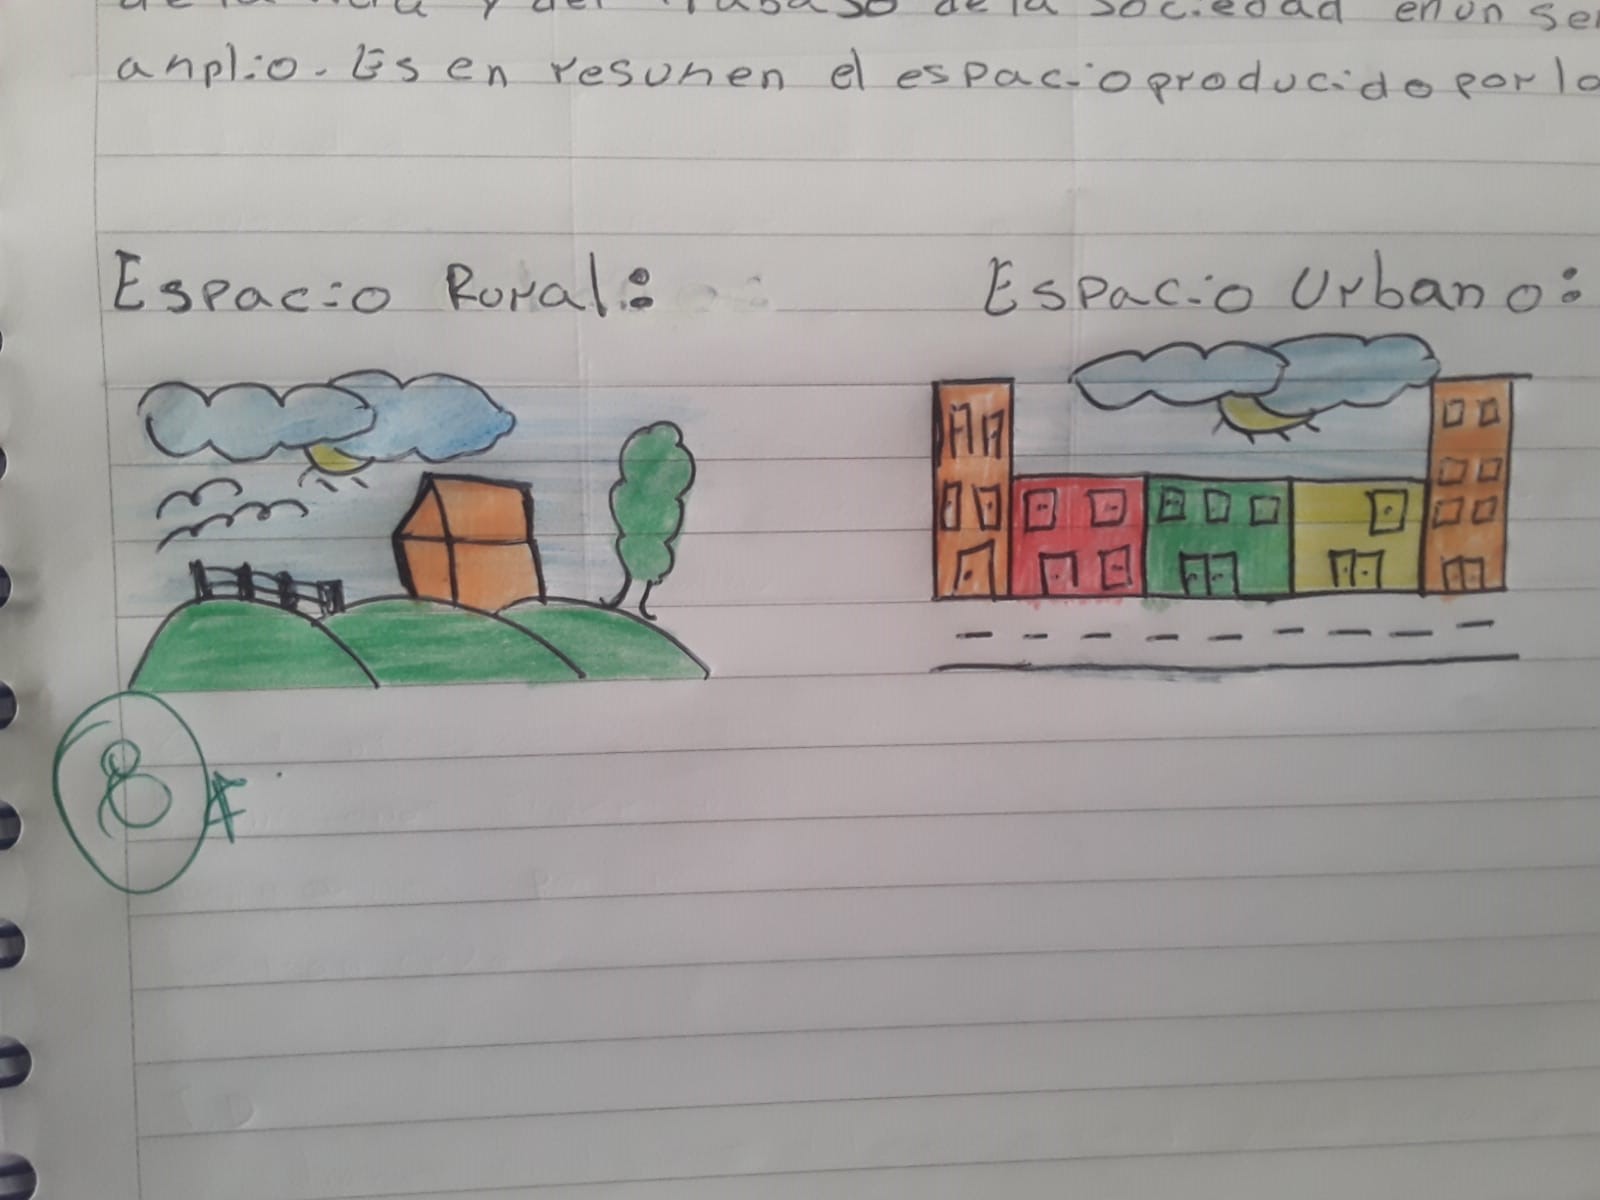 y del trabaso de la sociedad en un
anplio. Es en resumen el espacio producido por
Espacio Rural: Espacio Urbano:
8